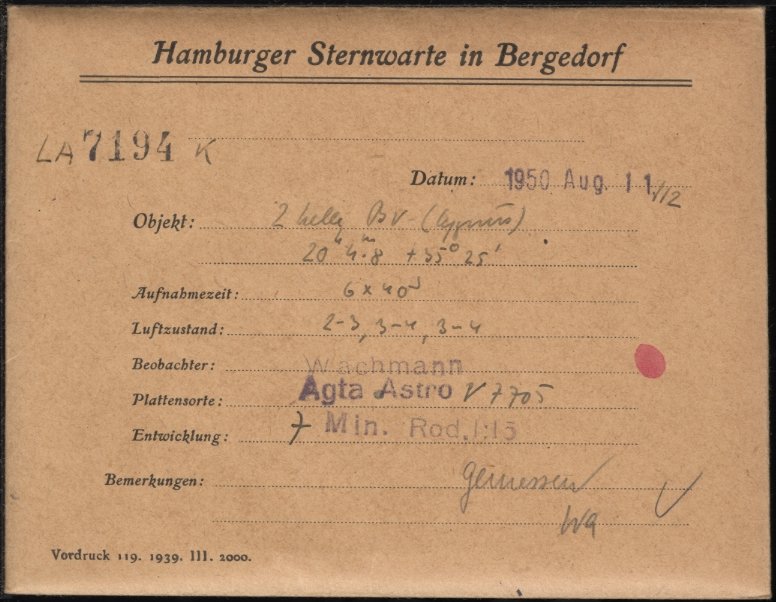 Hamburger Sternwarte in Bergedorf
LA 7194 K
Datum: 1950 Aug. 11./12
Objekt: 2 helle BV (Cygnus)
20ʰ 4ᵐ.8 +35° 25'
Aufnahmezeit: 6 x 40ˢ
Luftzustand: 2-3, 3-4, 3-4
Beobachter: Wachmann
Plattensorte: Agfa Astro V 7705
Entwicklung: 7 Min. Rod. 1:15
Bemerkungen: gemessen
Wa
Vordruck 119. 1939. III. 2000.